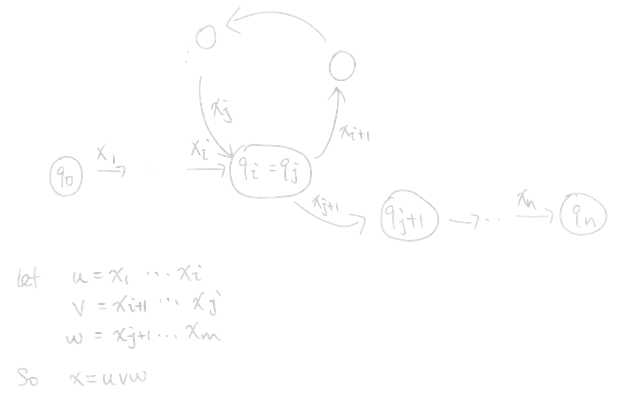 x_j
x_{i+1}
q_0 x_1 . . x_i q_i = q_j
x_{j+1} q_{j+1} .. x_n q_n
let u = x_1 ... x_i
v = x_{i+1} ... x_j
w = x_{j+1} ... x_m
So x = uvw